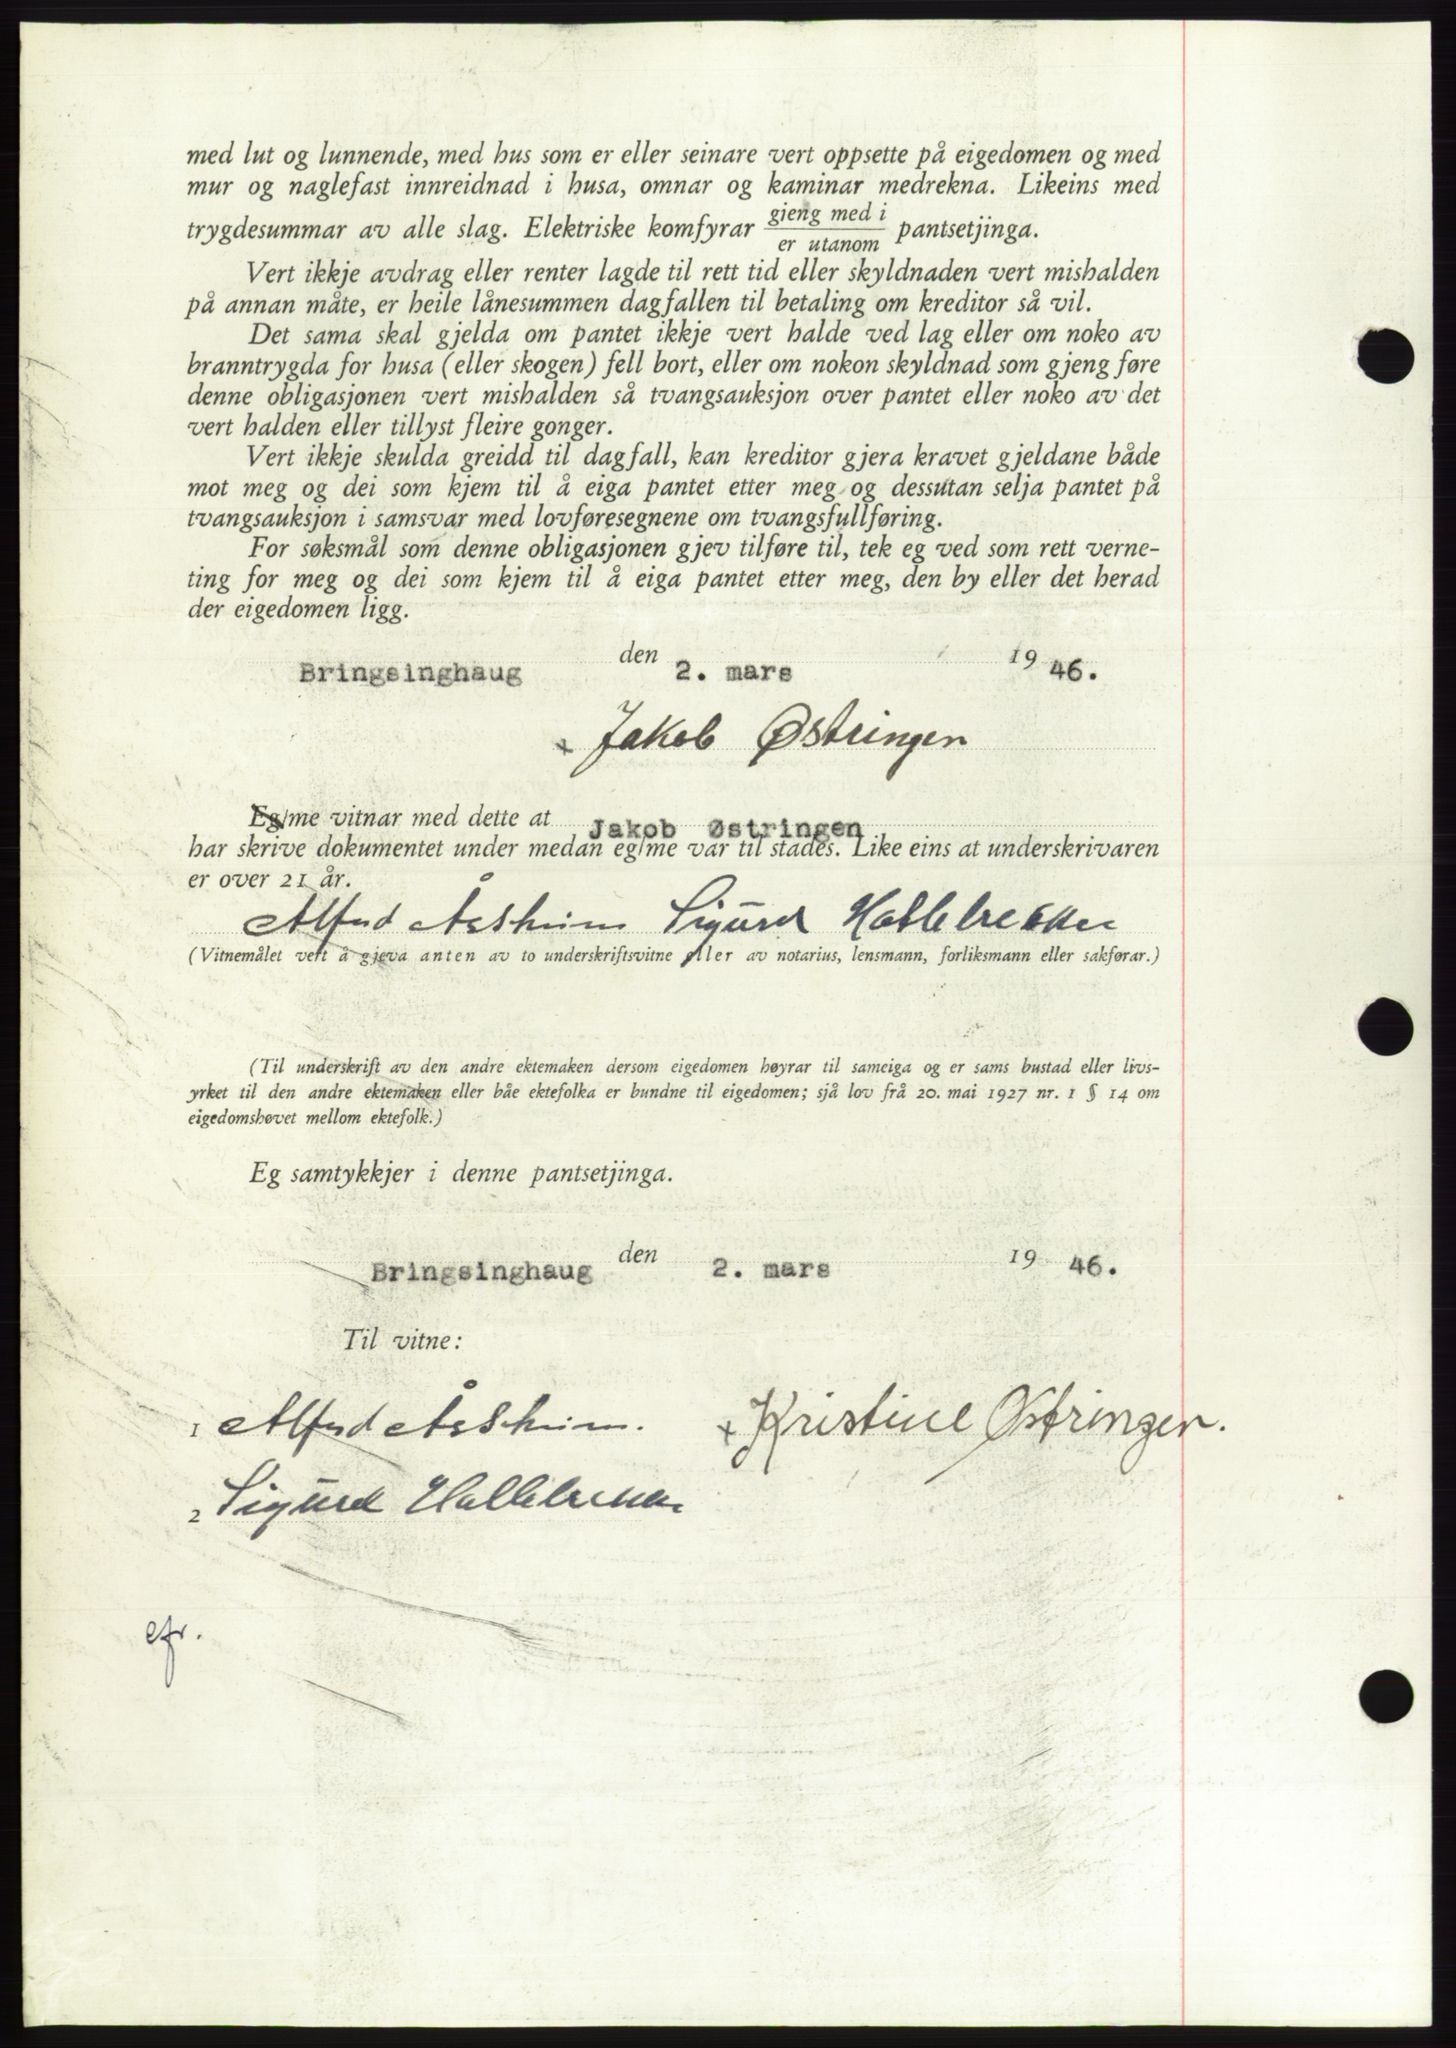 med lut og lunnende, med hus som er eller seinare vert oppsette på eigedomen og med
mur og naglefast innreidnad i husa, omnar og kaminar medrekna. Likeins med
trygdesummar av alle slag. Elektriske komfyrar gjeng med i / er utanom pantsetjinga.
Vert ikkje avdrag eller renter lagde til rett tid eller skyldnaden vert mishalden
på annan måte, er heile lånesummen dagfallen til betaling om kreditor så vil.
Det sama skal gjelda om pantet ikkje vert halde ved lag eller om noko av
branntrygda for husa (eller skogen) fell bort, eller om nokon skyldnad som gjeng føre
denne obligasjonen vert mishalden så tvangsauksjon over pantet eller noko av det
vert halden eller tillyst fleire gonger.
Vert ikkje skulda greidd til dagfall, kan kreditor gjera kravet gjeldane både
mot meg og dei som kjem til å eiga pantet etter meg og dessutan selja pantet på
tvangsauksjon i samsvar med lovføresegnene om tvangsfullføring.
For søksmål som denne obligasjonen gjev tilføre til, tek eg ved som rett verne-
ting for meg og dei som kjem til å eiga pantet etter meg, den by eller det herad
der eigedomen ligg.
Bringsinghaug den 2. mars 1946.
x Jakob Østringen
Eg/me vitnar med dette at Jakob Østringen
har skrive dokumentet under medan eg/me var til stades. Like eins at underskrivaren
er over 21 år.
Alfred Åsheim Sigurd Hallebrekke
(Vitnemålet vert å gjeva anten av to underskriftsvitne eller av notarius, lensmann, forliksmann eller sakførar.)
(Til underskrift av den andre ektemaken dersom eigedomen høyrar til sameiga og er sams bustad eller livs-
yrket til den andre ektemaken eller båe ektefolka er bundne til eigedomen; sjå lov frå 20. mai 1927 nr. 1 § 14 om
eigedomshøvet mellom ektefolk.)
Eg samtykkjer i denne pantsetjinga.
Bringsinghaug den 2. mars 1946.
Til vitne:
1 Alfred Åsheim. x Kristine Østringen.
2 Sigurd Hallebrekke